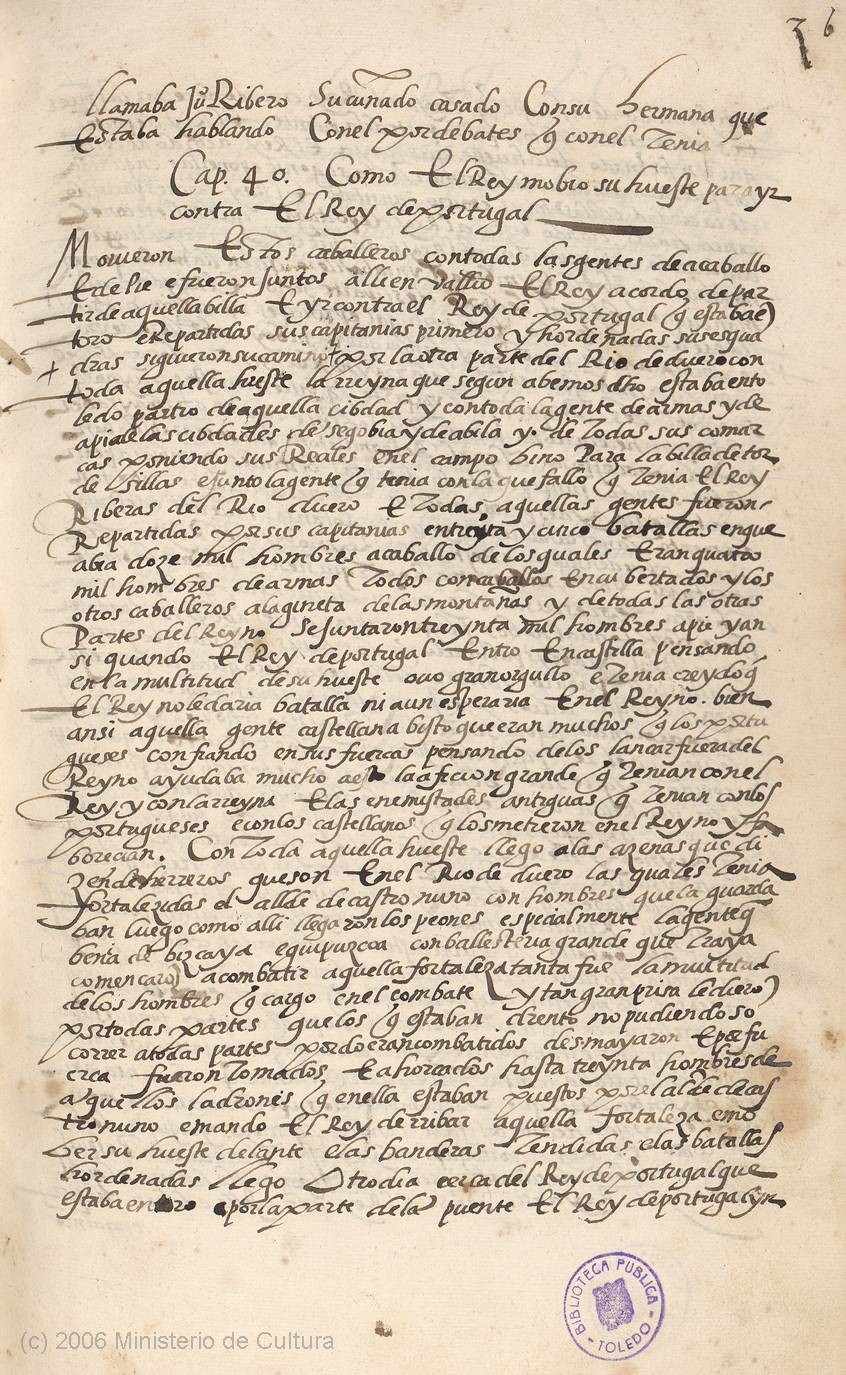 36
llamaba Juº Ribero Su cuñado casado Con su hermana que
Estaba hablando Conel por debates q̃ conel Tenia
Cap. 40. Como El Rey mobio su hueste para yr
contra El Rey de portugal
Movieron Estos caballeros con todas las gentes de acaballo
E de Pie e fueron Juntos alli en Vallid El Rey acordo de par
tir de aquella billa E yr contra el Rey de portugal q̃ estaba ẽ
toro e Repartidas sus capitanias primero y hordenadas sus esqua
dras siguieron su camino por la otra parte del Rio de duero con
toda aquella hueste la rreyna que segun abemos dho estaba en to
ledo partio de aquella cibdad y con toda la gente de armas y de
a pie de las cibdades de segobia y de abila y de Todas sus comar
cas poniendo sus Reales enel campo bino Para la billa de tor
de sillas e junto la gente q̃ tenia con la que fallo q̃ Tenia El Rey
Riberas del Rio duero E Todas aquellas gentes fueron
Repartidas por sus capitanias en treynta y cinco batallas en que
abia doze mil hombres acaballo de los quales Eran quatro
mil hombres de armas Todos con caballos Encubertados y los
otros caballeros ala gineta de las montañas y de todas las otras
Partes del Reyno Se juntaron treynta mil hombres apie y an
si quando El Rey de portugal Entro En castilla pensando
en la multitud de su hueste ovo gran orgullo e Tenia creydo q̃
El Rey no le daria batalla ni aun esperaria Enel Reyno. bien
ansi aquella gente castellana bisto que eran muchos q̃ los portu
gueses confiando en sus fuercas pensando delos lancar fuera del
Reyno ayudaba mucho a esto la aficion grande q̃ Tenian conel
Rey y con la rreyna E las enemistades antiguas q̃ Tenian con los
portugueses e con los castellanos q̃ los metieron enel Reyno y fa
borecian. Con Toda aquella hueste llego alas azenas que di
zen de herreros que son Enel Rio de duero las quales Tenia
fortalezidas el allde de castro nuño con hombres que la guarda
ban luego como alli llegaron los peones especialmente la gente q̃
benia de bizcaya e guipuzcoa con ballesteria grande que Traya
comencarõ acombatir aquella fortaleza tanta fue la multitud
delos hombres q̃ cargo enel combate y tan gran prisa le dierõ
por todas partes que los q̃ estaban drento no pudiendo so
correr a todas partes por do eran combatidos desmayaron E por fu
erca fueron Tomados E ahorcados hasta treynta hombres de
aquellos ladrones q̃ enella estaban puestos por el alcde de cas
tro nuño e mando El Rey derribar aquella fortaleza e mo
ber su hueste delante e las banderas Tendidas e las batallas
hordenadas llego Otro dia cerca del Rey de portugal que
estaba en toro e por la parte dela puente El Rey de portugal
BIBLIOTECA PUBLICA
TOLEDO
(c) 2006 Ministerio de Cultura